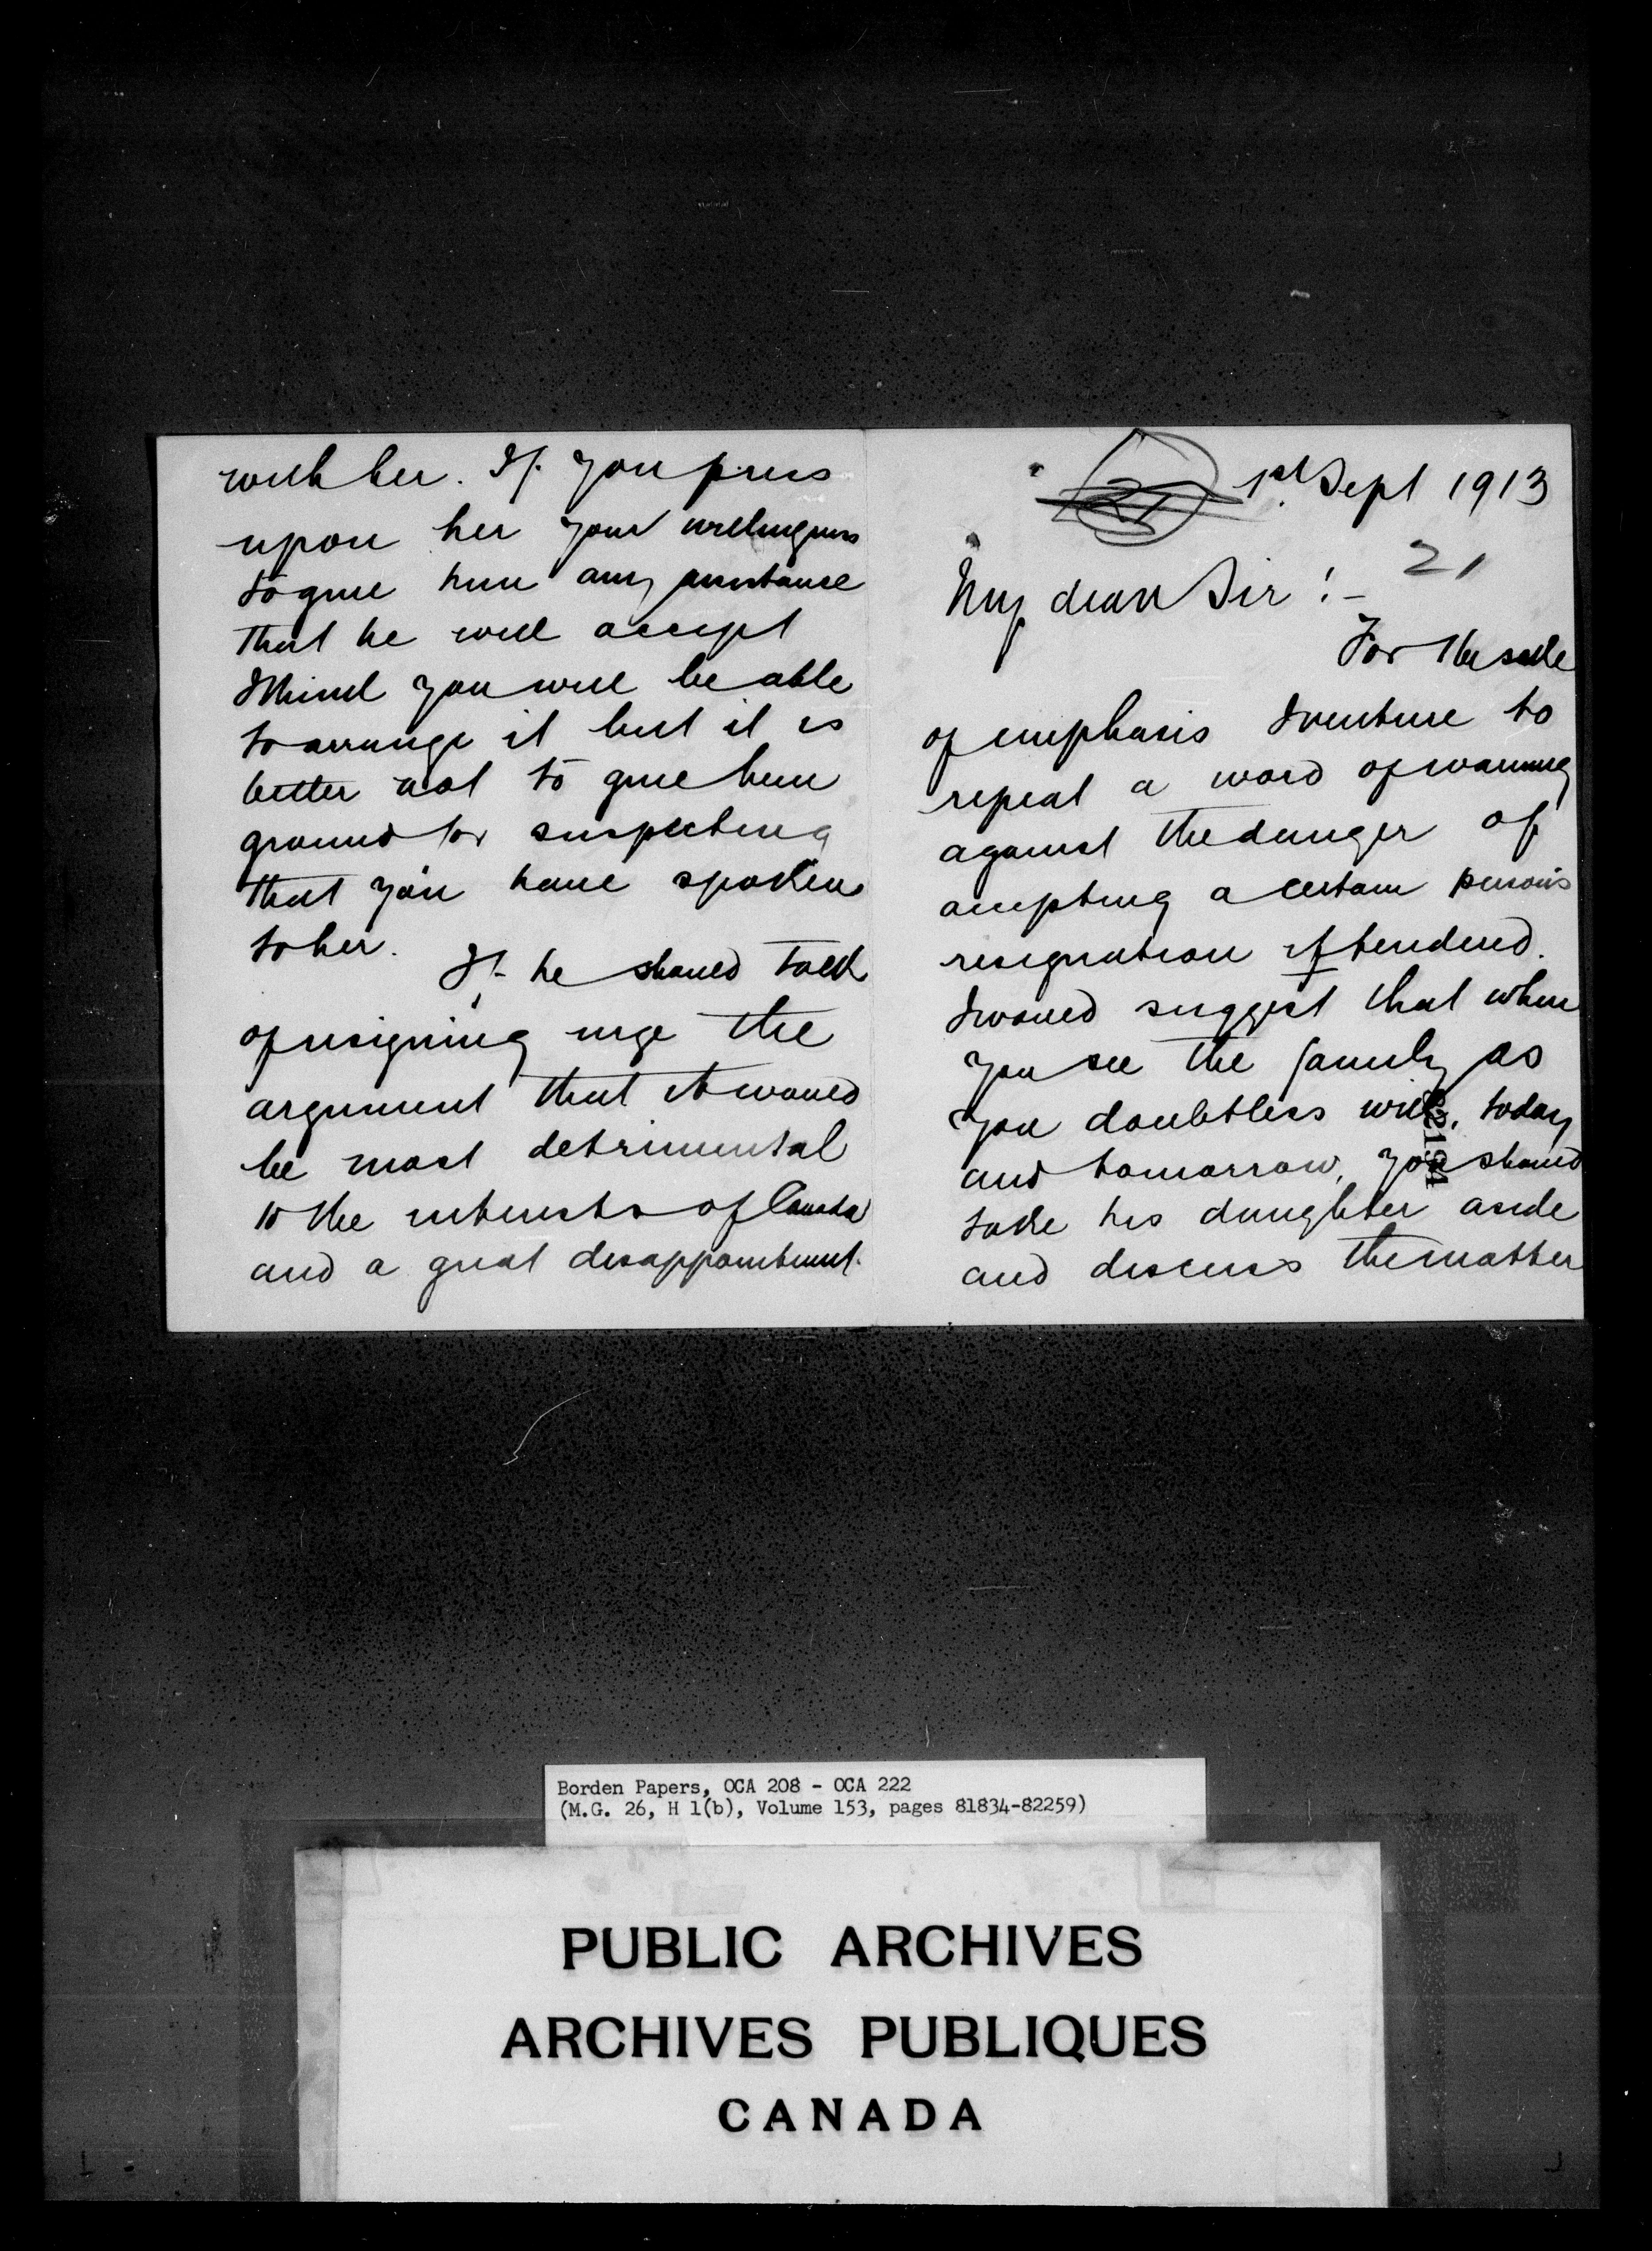 1st Sept 1913
21
My dear Sir! -
For the sake
of emphasis I venture to
repeat a word of warning
against the danger of
accepting a certain person's
resignation if tendered.
I would suggest that when
you see the family as
you doubtless will, today
and tomorrow, you should
take his daughter aside
and discuss the matter
with her. If you press
upon her your willingness
to give him any assistance
that he will accept
I think you will be able
to arrange it but it is
better not to give him
ground for suspecting
that you have spoken
to her.
If he should talk
of resigning urge the
argument that it would
be most detrimental
to the interests of Canada
and a great disappointment.
82194
Borden Papers, OCA 208 - OCA 222
(M.G. 26, H 1(b), Volume 153, pages 81834-82259)
PUBLIC ARCHIVES
ARCHIVES PUBLIQUES
CANADA